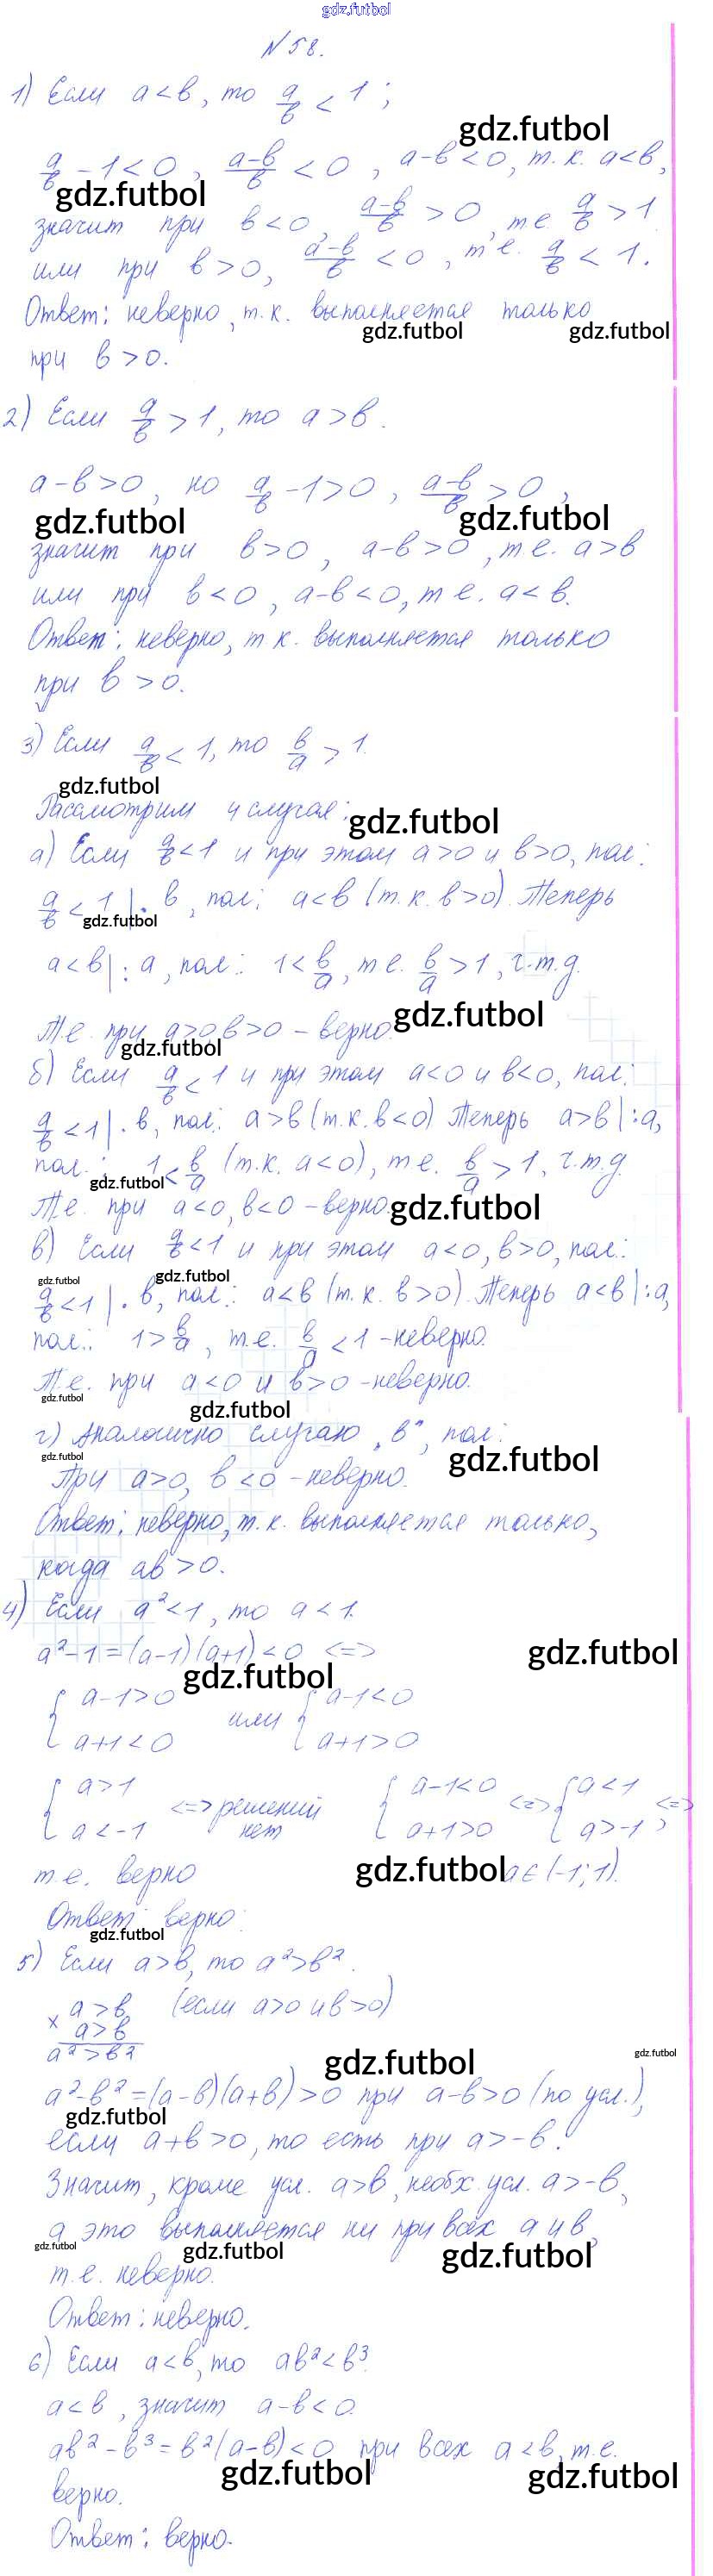 gdz.futbol
№ 58.
1) Если a < b, то a/b < 1;
gdz.futbol
a/b - 1 < 0, (a-b)/b < 0, a-b < 0, т.к. a < b,
gdz.futbol
значит при b < 0, (a-b)/b > 0, т.е. a/b > 1
или при b > 0, (a-b)/b < 0, т.е. a/b < 1.
Ответ: неверно, т.к. выполняется только
gdz.futbol gdz.futbol
при b > 0.
2) Если a/b > 1, то a > b.
a - b > 0, но a/b - 1 > 0, (a-b)/b > 0,
gdz.futbol gdz.futbol
значит при b > 0, a-b > 0, т.е. a > b
или при b < 0, a-b < 0, т.е. a < b.
Ответ: неверно, т к. выполняется только
при b > 0.
3) Если a/b < 1, то b/a > 1.
gdz.futbol
Рассмотрим 4 случая:
gdz.futbol
а) Если a/b < 1 и при этом a > 0 и b > 0, пол:
a/b < 1 | · b, пол: a < b (т.к. b > 0). Теперь
gdz.futbol
a < b | : a, пол: 1 < b/a, т.е. b/a > 1, ч.т.д.
gdz.futbol
Т.е. при a > 0, b > 0 - верно.
gdz.futbol
б) Если a/b < 1 и при этом a < 0 и b < 0, пол:
a/b < 1 | · b, пол: a > b (т.к. b < 0) Теперь a > b | : a,
пол: 1 < b/a (т.к. a < 0), т.е. b/a > 1, ч.т.д.
gdz.futbol
Т.е. при a < 0, b < 0 - верно.
gdz.futbol
в) Если a/b < 1 и при этом a < 0, b > 0, пол:
gdz.futbol gdz.futbol
a/b < 1 | · b, пол: a < b (т.к. b > 0). Теперь a < b | : a,
пол: 1 > b/a, т.е. b/a < 1 - неверно.
Т.е. при a < 0 и b > 0 - неверно.
gdz.futbol
gdz.futbol
г) Аналогично случаю „в", пол:
gdz.futbol gdz.futbol
При a > 0, b < 0 - неверно.
Ответ: неверно, т.к. выполняется только,
когда ab > 0.
4) Если a² < 1, то a < 1.
a² - 1 = (a-1)(a+1) < 0 <=>
gdz.futbol
gdz.futbol
{ a-1 > 0 или { a-1 < 0
a+1 < 0 a+1 > 0
{ a > 1 <=> решений { a-1 < 0 <=> { a < 1 <=>
a < -1 нет a+1 > 0 a > -1,
т.е. верно gdz.futbol a ∈ (-1; 1).
Ответ: верно.
gdz.futbol
5) Если a > b, то a² > b².
× a > b (если a > 0 и b > 0)
a > b
a² > b²
gdz.futbol
gdz.futbol
a² - b² = (a-b)(a+b) > 0 при a-b > 0 (по усл.),
gdz.futbol
если a+b > 0, то есть при a > -b.
Значит, кроме усл. a > b, необх. усл. a > -b,
а это выполняется ни при всех a и b,
gdz.futbol gdz.futbol gdz.futbol
т.е. неверно.
Ответ: неверно.
6) Если a < b, то ab² < b³.
a < b, значит a-b < 0.
ab² - b³ = b²(a-b) < 0 при всех a < b, т.е.
gdz.futbol gdz.futbol
верно.
Ответ: верно.